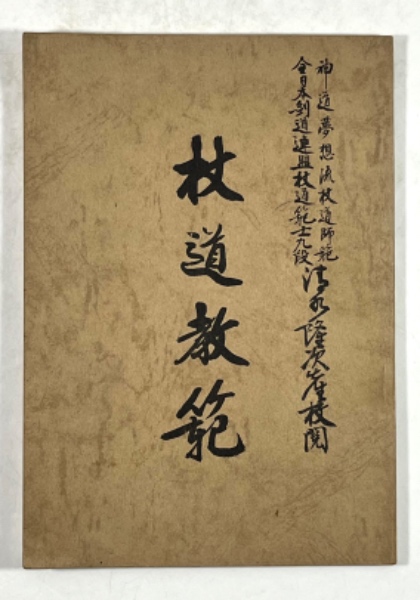 神道夢想流杖道師範
全日本剣道連盟杖道範士九段
清水隆次先生校閲
杖道教範